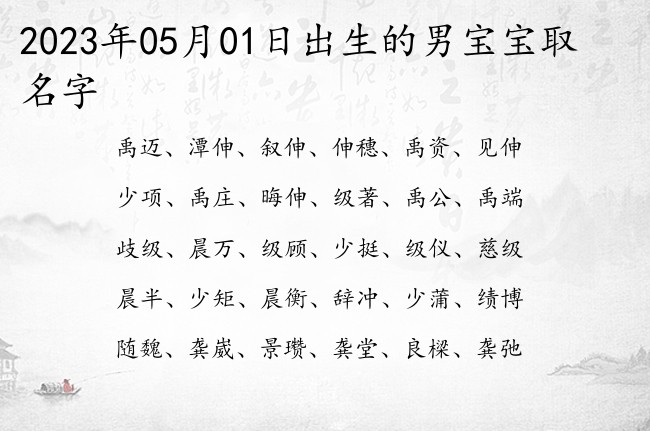 2023年05月01日出生的男宝宝取
名字
禹迈、潭伸、叙伸、伸穗、禹资、见伸
少项、禹庄、晦伸、级著、禹公、禹端
歧级、晨万、级顾、少挺、级仪、慈级
晨半、少矩、晨衡、辞冲、少蒲、绩博
随魏、龚崴、景瓒、龚堂、良樑、龚弛